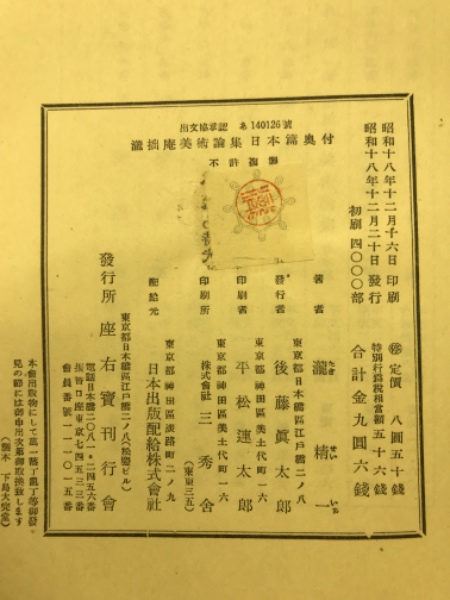 出文協承認 あ140126號
瀧拙庵美術論集日本篇奥付
不許複製
昭和十八年十二月十六日印刷
昭和十八年十二月二十日發行
初刷四〇〇〇部
定價 八圓五十錢
特別行爲税相當額五十六錢
合計金九圓六錢
著者 瀧精一
たき せい いち
東京都日本橋區江戸橋二ノ八
發行者 後藤眞太郎
東京都神田區美土代町一六
印刷者 平松連太郎
東京都神田區美土代町一六
印刷所 株式會社三秀舍
(東東三五)
東京都神田區淡路町二ノ九
配給元 日本出版配給株式會社
東京都日本橋區江戸橋二ノ八(松慶ビル)
發行所 座右寶刊行會
電話日本橋二〇八一・二四五六番
振替口座東京七四五三三番
會員番號一一一〇一五番
本會出版物にして萬一落丁亂丁等御發
見の節には御申出次第御取換致します
(製本 下島大完堂)